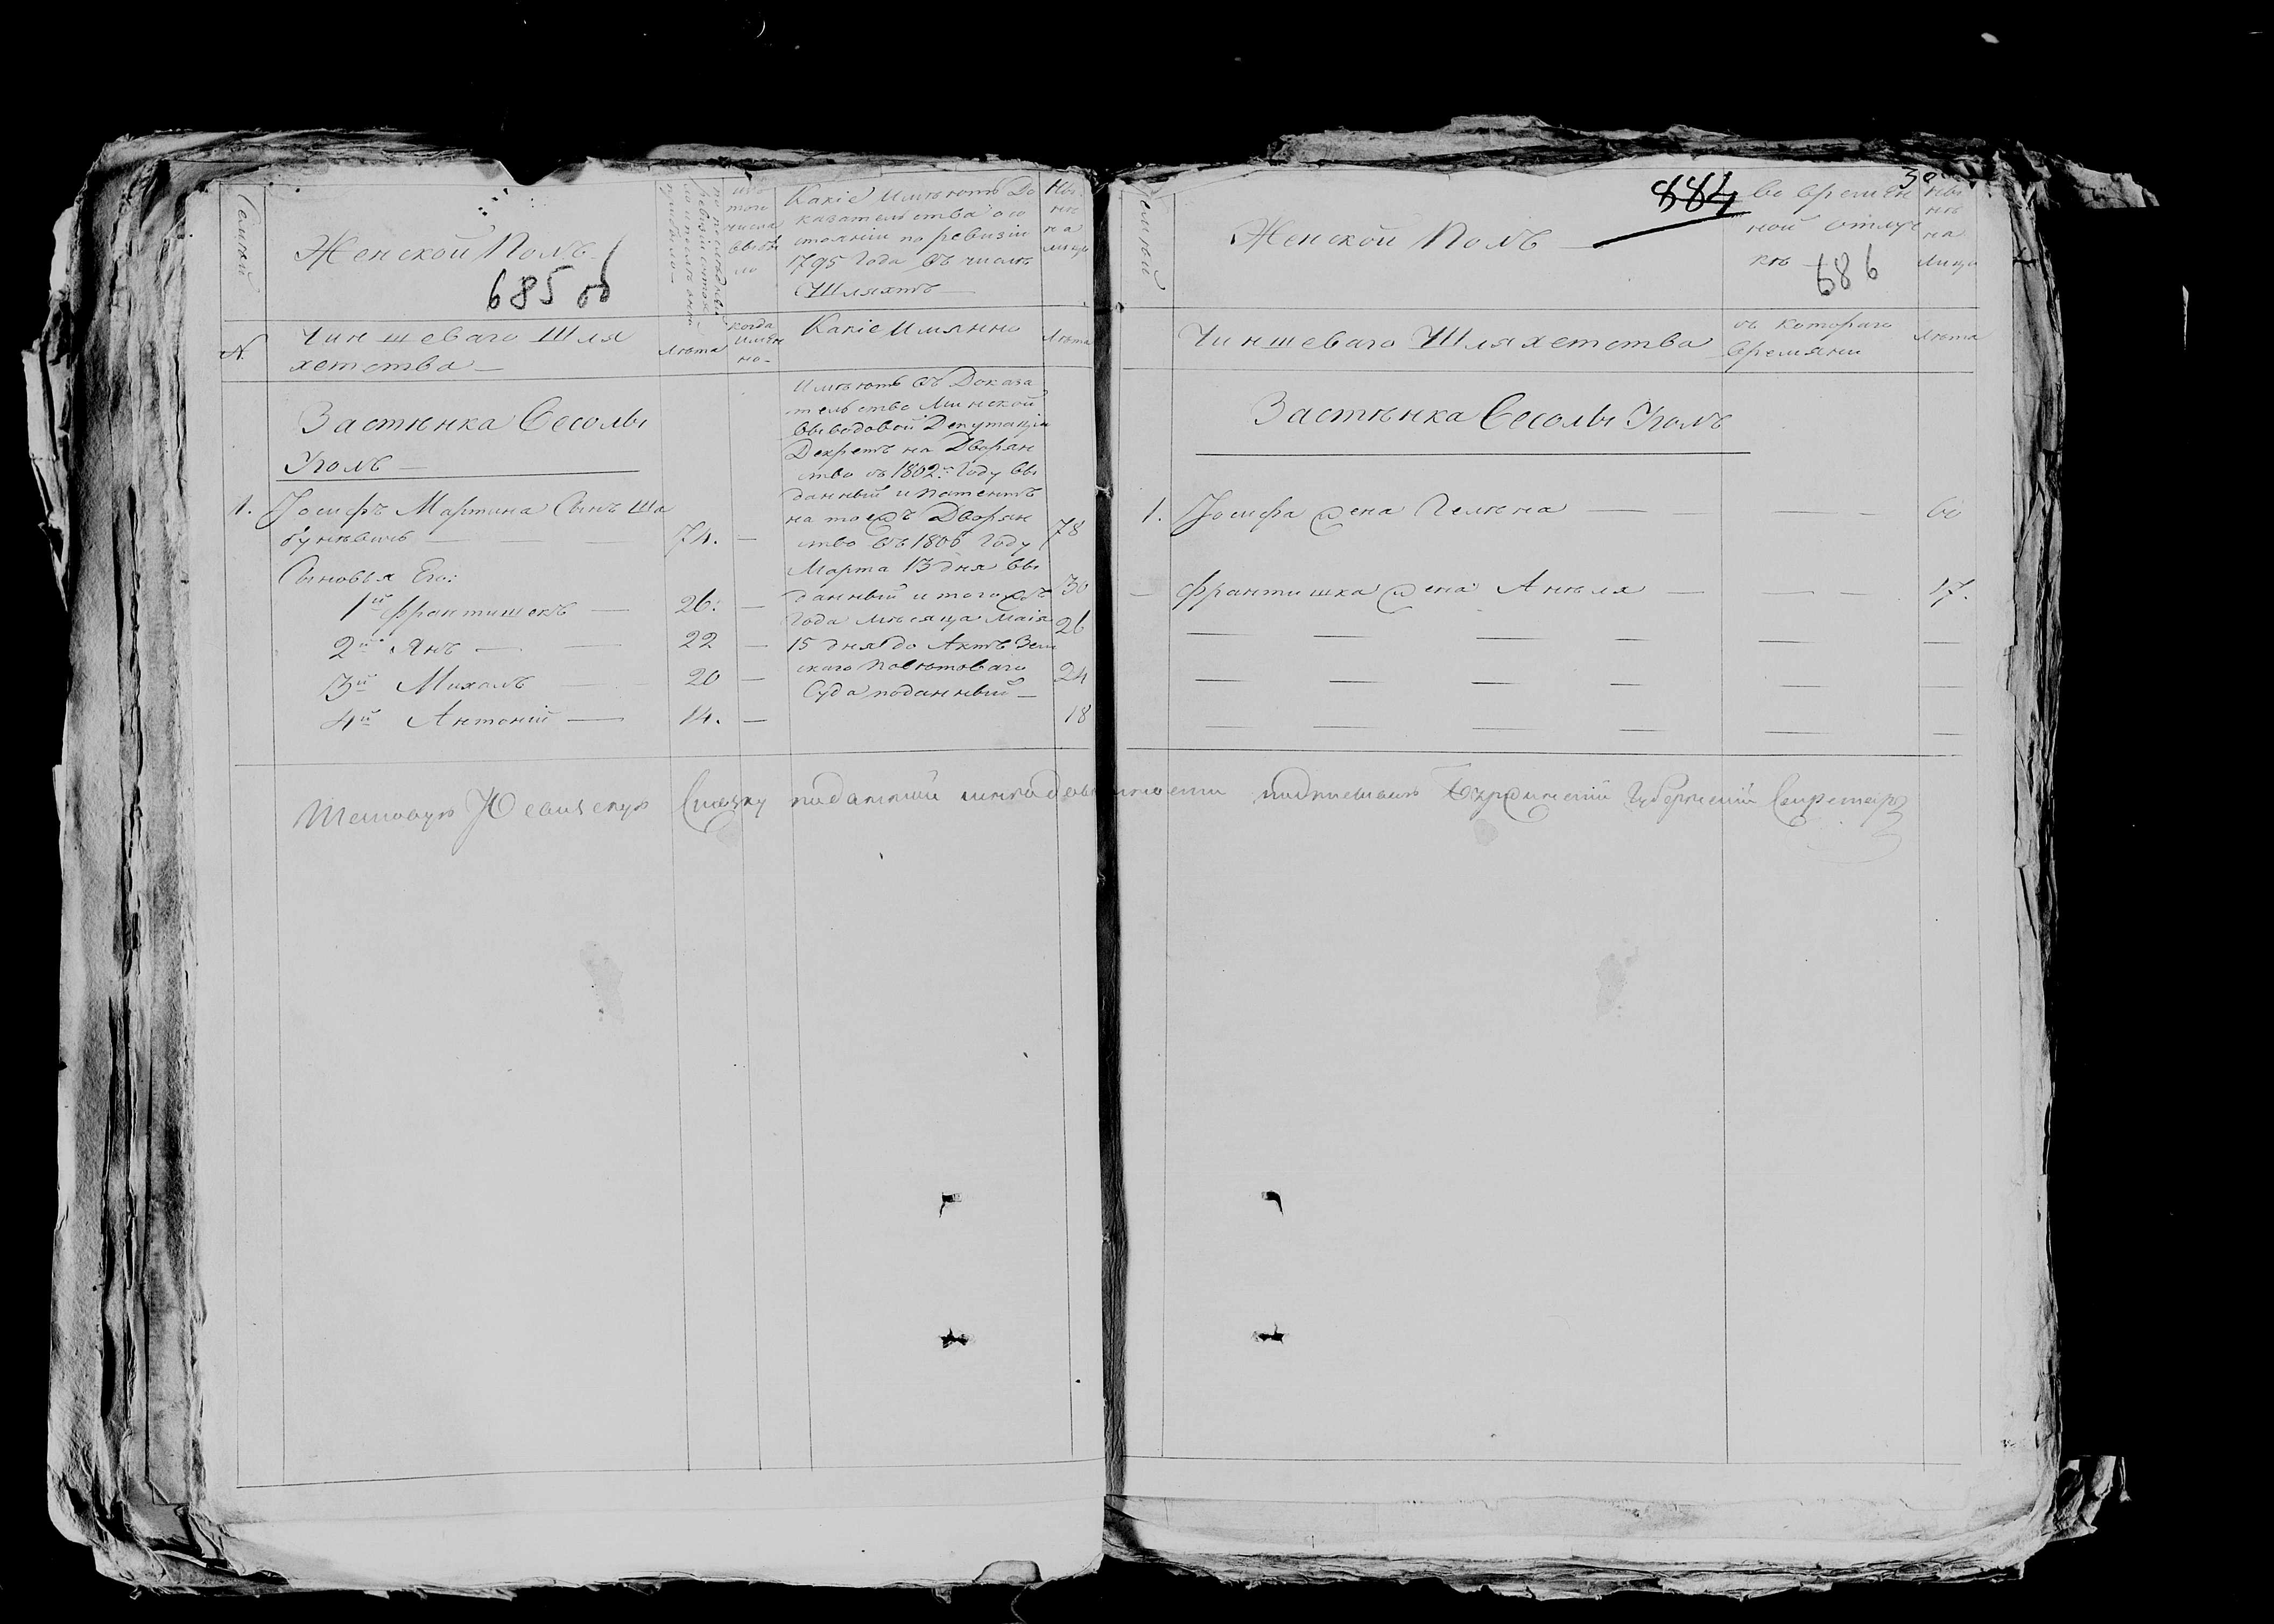 Семьи
Женской Полъ
685 об
по последней
ревизіи состоя
ло и после оной
прибыло
изъ
того
числа
выбы
ло
Какіе Имѣютъ До
казательства о со
стояніи по ревизіи
1795 Года Въ числѣ
Шляхтѣ
Ны
нѣ
на
лицо
№
Чиншеваго Шля
хетства
Лѣта
когда
имян
но
Какіе Имянно
Лѣта
Застѣнка Весолы
Уголъ
Имѣютъ Въ Доказа
тельство Минской
выводовой Депутаціи
Декретъ на Дворян
ство въ 1802м Году вы
данный и патентъ
на тоежъ Дворян
ство Въ 1806 Году
Марта 13 дня вы
данный и тогожъ
Года мѣсяца Маія
15 дня до Актъ Зем
скаго Повѣтоваго
Суда поданный
1. Іосифъ Мартина Сынъ Ша
бунѣвичъ 74. 78
Сыновья Его:
1й Франтишекъ 26. 30
2й Янъ 22 26
3й Михалъ 20 24
4й Антоній 14. 18
884
30
Семьи
Женской Полъ
во времен
ной отлуч
кѣ
686
ны
нѣ
на
Лицо
Чиншеваго Шляхетства
съ котораго
времяни
Лѣта
Застѣнка Весолы Уголъ
1. Іосифа жена 60
Франтишка жена Анѣля 17.
Сказку Губернскій Секретарь